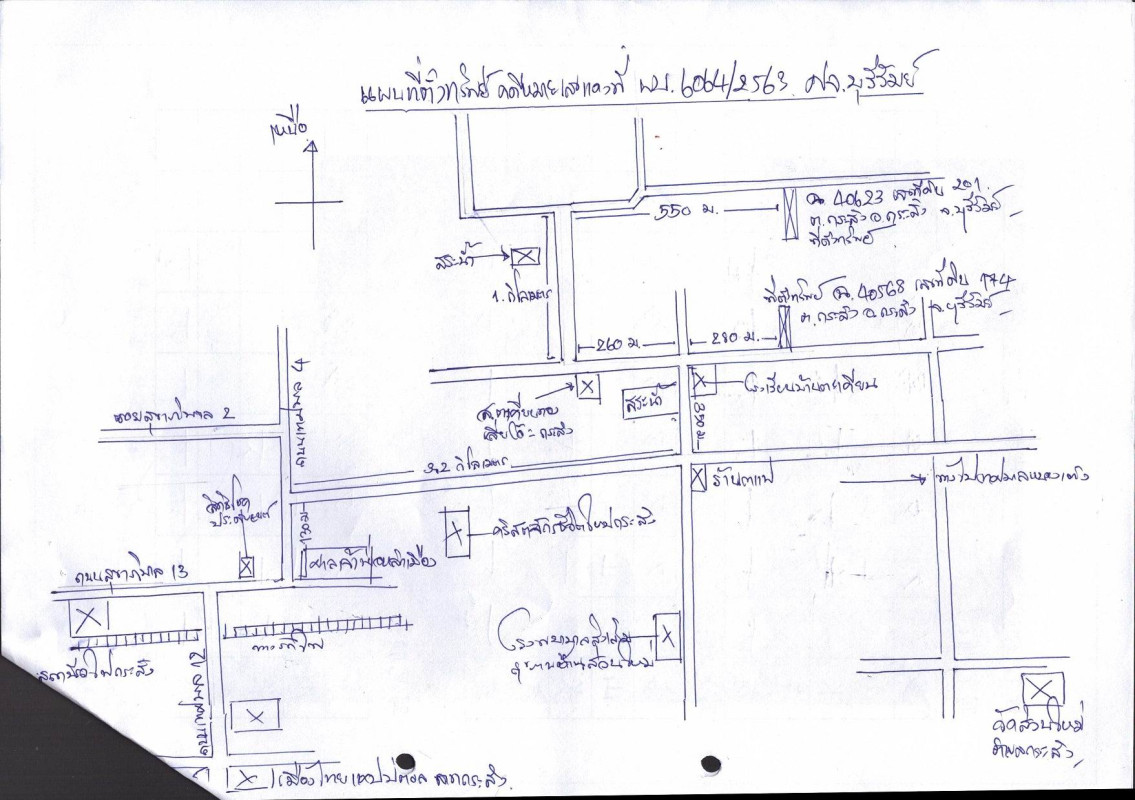 แผนที่ตั้งทรัพย์ คดีหมายเลขแดงที่ ผบ.6064/2563 ศจ.บุรีรัมย์
เหนือ
550 ม.
ฉ 40623 เลขที่ดิน 201
ต.กระสัง อ.กระสัง จ.บุรีรัมย์
ที่ตั้งทรัพย์
สระน้ำ
1. กิโลเมตร
ที่ตั้งทรัพย์ ฉ.40568 เลขที่ดิน 174
ต.กระสัง อ.กระสัง จ.บุรีรัมย์
260 ม.
280 ม.
โรงเรียนบ้านตะเคียน
สระน้ำ
350 ม.
กระสัง
ถนนเทศบาล 4
ซอยสุขาภิบาล 2
3.2 กิโลเมตร
ร้านกาแฟ
130 ม.
คริสตจักรชีวิตใหม่กระสัง
ศาลเจ้าพ่อหลักเมือง
ถนนสุขาภิบาล 13
ทางรถไฟ
สถานีรถไฟกระสัง
ถนนเทศบาล 12
โรงพยาบาลส่งเสริม
สุขภาพบ้านสวนใหม่
วัดสวนใหม่
อำเภอกระสัง
เมืองไทยแคปปิตอล สาขากระสัง